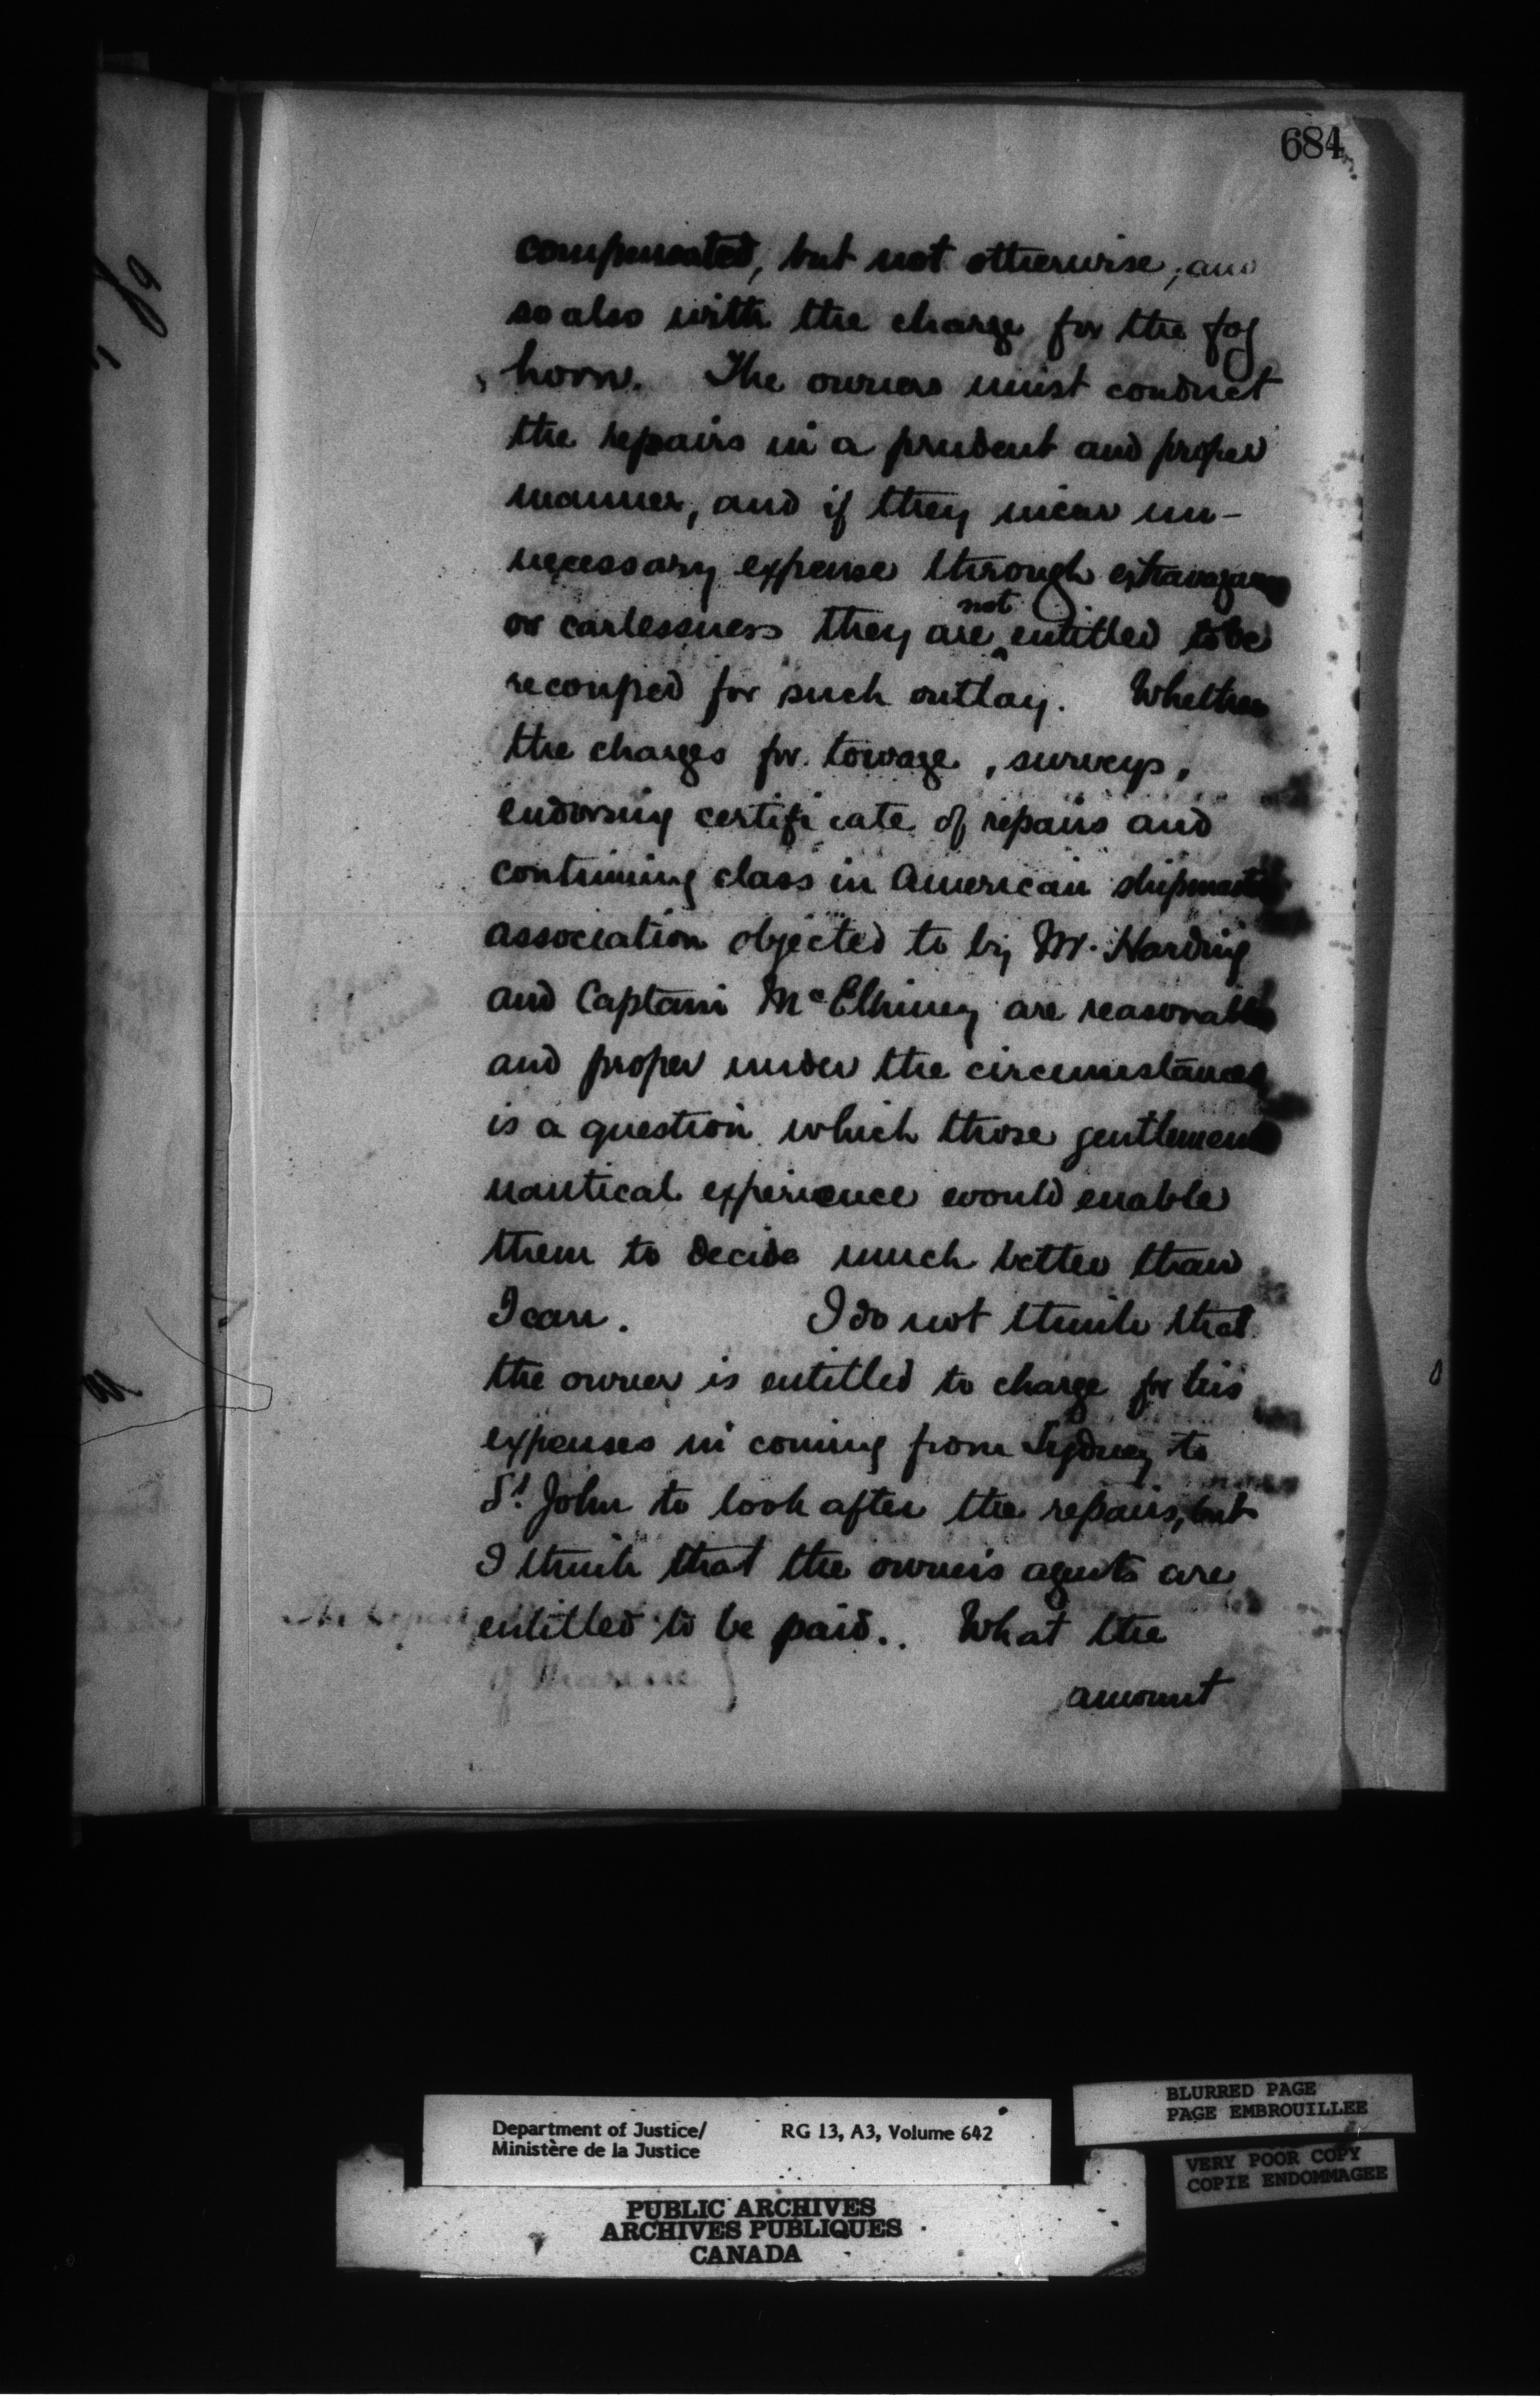 684
compensated, but not otherwise; and
so also with the charge for the fog
horn. The owners must conduct
the repairs in a prudent and proper
manner, and if they incur un-
necessary expense through extravagance
or carlessness they are not entitled to be
recouped for such outlay. Whether
the charges for towage, surveys,
endorsing certificate of repairs and
continuing class in American shipmasters
association objected to by Mr. Harding
and Captain McElhiney are reasonable
and proper under the circumstances
is a question which those gentlemens
nautical experience would enable
them to decide much better than
I can. I do not think that
the owner is entitled to charge for his
expenses in coming from Sydney to
St. John to look after the repairs, but
I think that the owners agents are
entitled to be paid. What the
amount
Department of Justice/
Ministère de la Justice
RG 13, A3, Volume 642
PUBLIC ARCHIVES
ARCHIVES PUBLIQUES
CANADA
BLURRED PAGE
PAGE EMBROUILLEE
VERY POOR COPY
COPIE ENDOMMAGEE